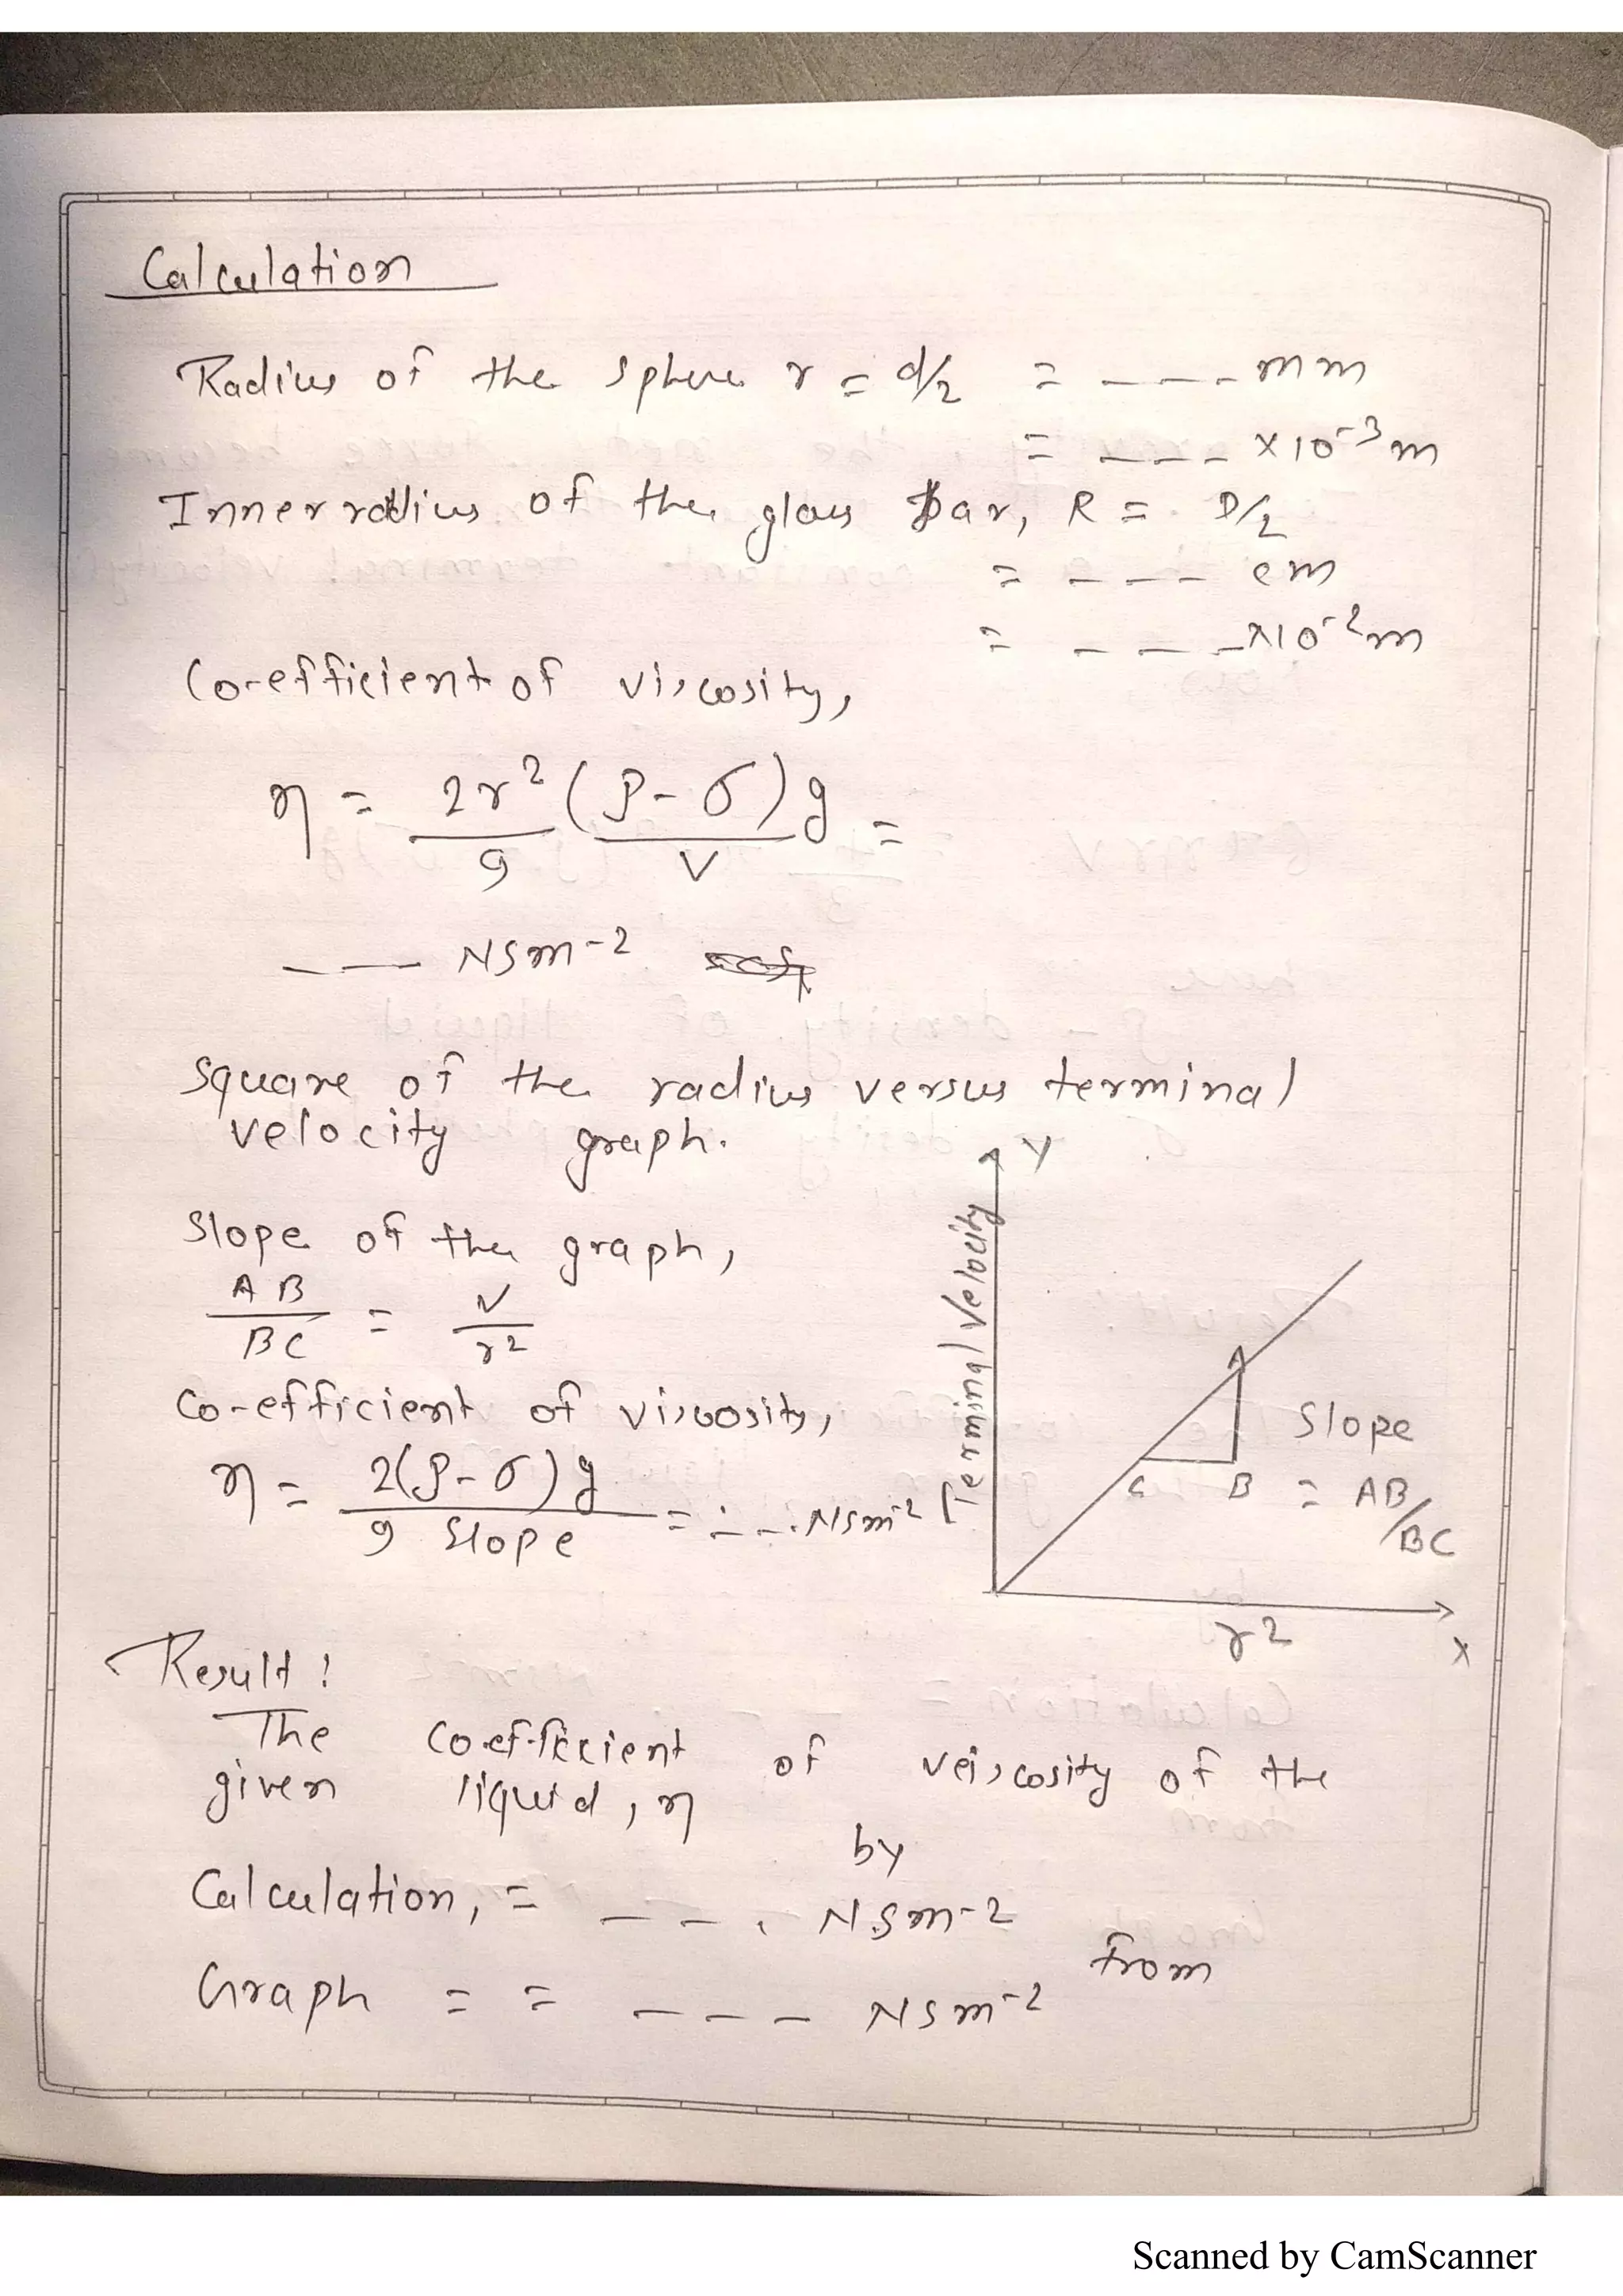 Calculation
Radius of the sphere r = d/2 = - - - mm
= - - - ×10-3 m
Inner radius of the glass bar, R = D/2
= - - - cm
= - - - ×10-2 m
Co-efficient of viscosity,
η = 2r2 (ρ - σ) g =
9 V
- - - NSm-2
Square of the radius versus terminal
velocity graph.
Y
Slope of the graph,
AB = V
BC r2
Terminal Velocity
Co-efficient of viscosity,
η = 2(ρ - σ) g = - - - NSm-2
9 Slope
A
C B
Slope
= AB/BC
r2
X
Result:
The co-efficient of veiscosity of the
given liquid, η
by
Calculation, = - - - NSm-2
from
Graph = = - - - NSm-2
Scanned by CamScanner